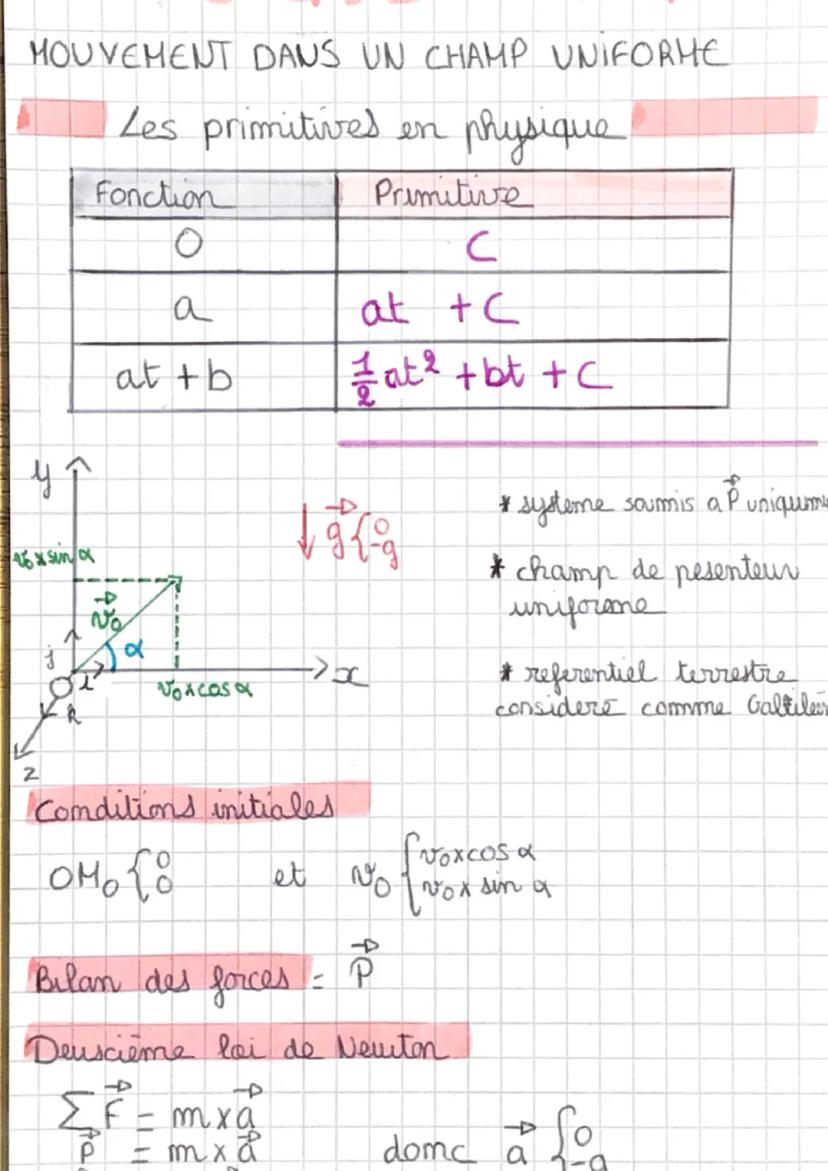 MOUVEMENT DANS UN CHAMP UNIFORME
Les primitives en physique
Fonction Primitive
0 C
a at + C
at + b 1/2 at² + bt + C
y
v₀ x sin α
v⃗₀
α
j
i
k
x
z
v₀ x cos α
g⃗ { 0
-g
* systeme soumis a P⃗
* champ de pesenteur
uniforme
* referentiel terrestre
considéré comme
Conditions initiales
OM₀ { 0
0
et v₀ { v₀ x cos α
v₀ x sin α
Bilan des forces = P⃗
Deuxième loi de Newton
∑ F⃗ = m x a⃗
P⃗ = m x a⃗ donc a⃗ { 0
-g